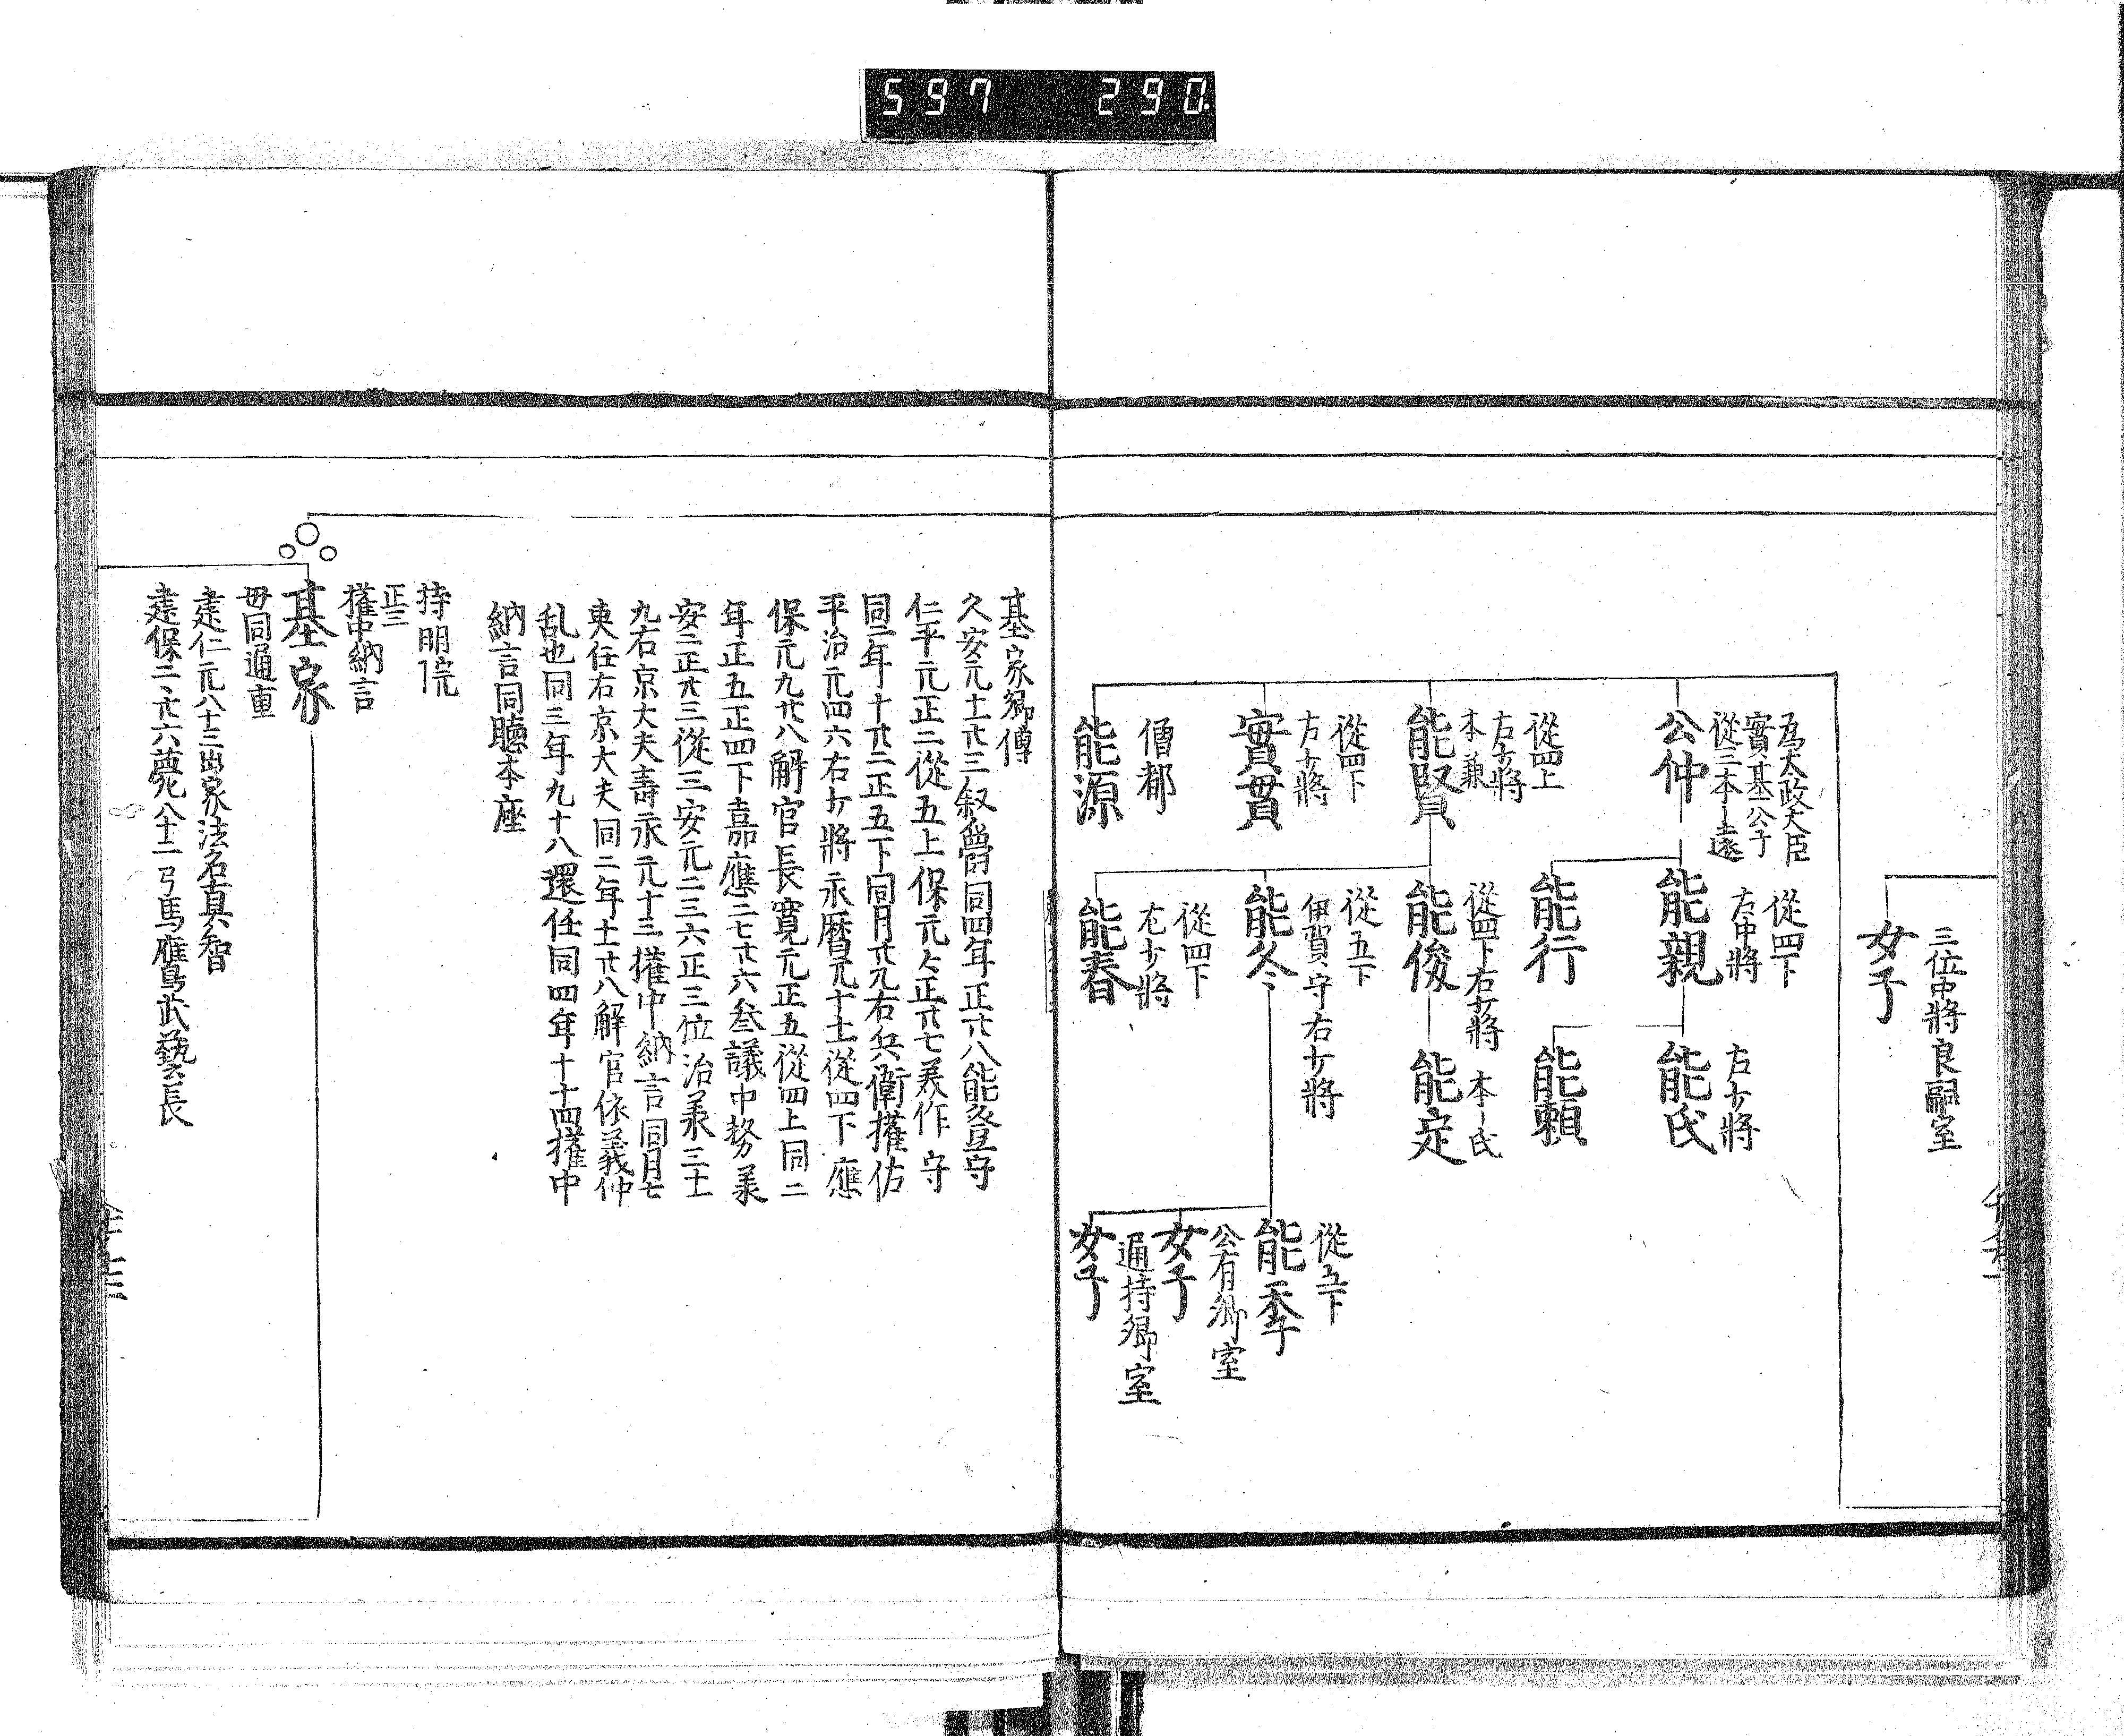 597 290
三位中將良嗣室
女子
為太政大臣
實基公子
從三本遠
公仲
從四下
右中將
能親
左少將
能氏
能行
能頼
從四上
左少將
本兼
能賢
從四下右少將
能俊
本氏
能定
從四下
左少將
實貫
從五下
伊賀守右少將
能冬
從五下
能季
公有卿室
女子
通持卿室
女子
僧都
能源
從四下
左少將
能春
基家卿傳
久安元十二廿三叙爵同四年正廿八能登守
仁平元正二從五上保元々正廿七美作守
同二年十廿二正五下同月廿九右兵衛權佐
平治元四六右少將永暦元十十二從四下應
保元九廿八解官長寛元正五從四上同二
年正五正四下嘉應二七廿六叁議中務美
安二正廿三從三安元二三六正三位治美三十一
九右京大夫壽永元十三權中納言同月七
更任右京大夫同二年十一廿八解官依義仲
乱也同三年九十八還任同四年十十四權中
納言同聽本座
持明院
正三
權中納言
基家
母同通重
建仁元八十三出家法名真智
建保二、廿六薨八十二弓馬鷹鳥武藝長